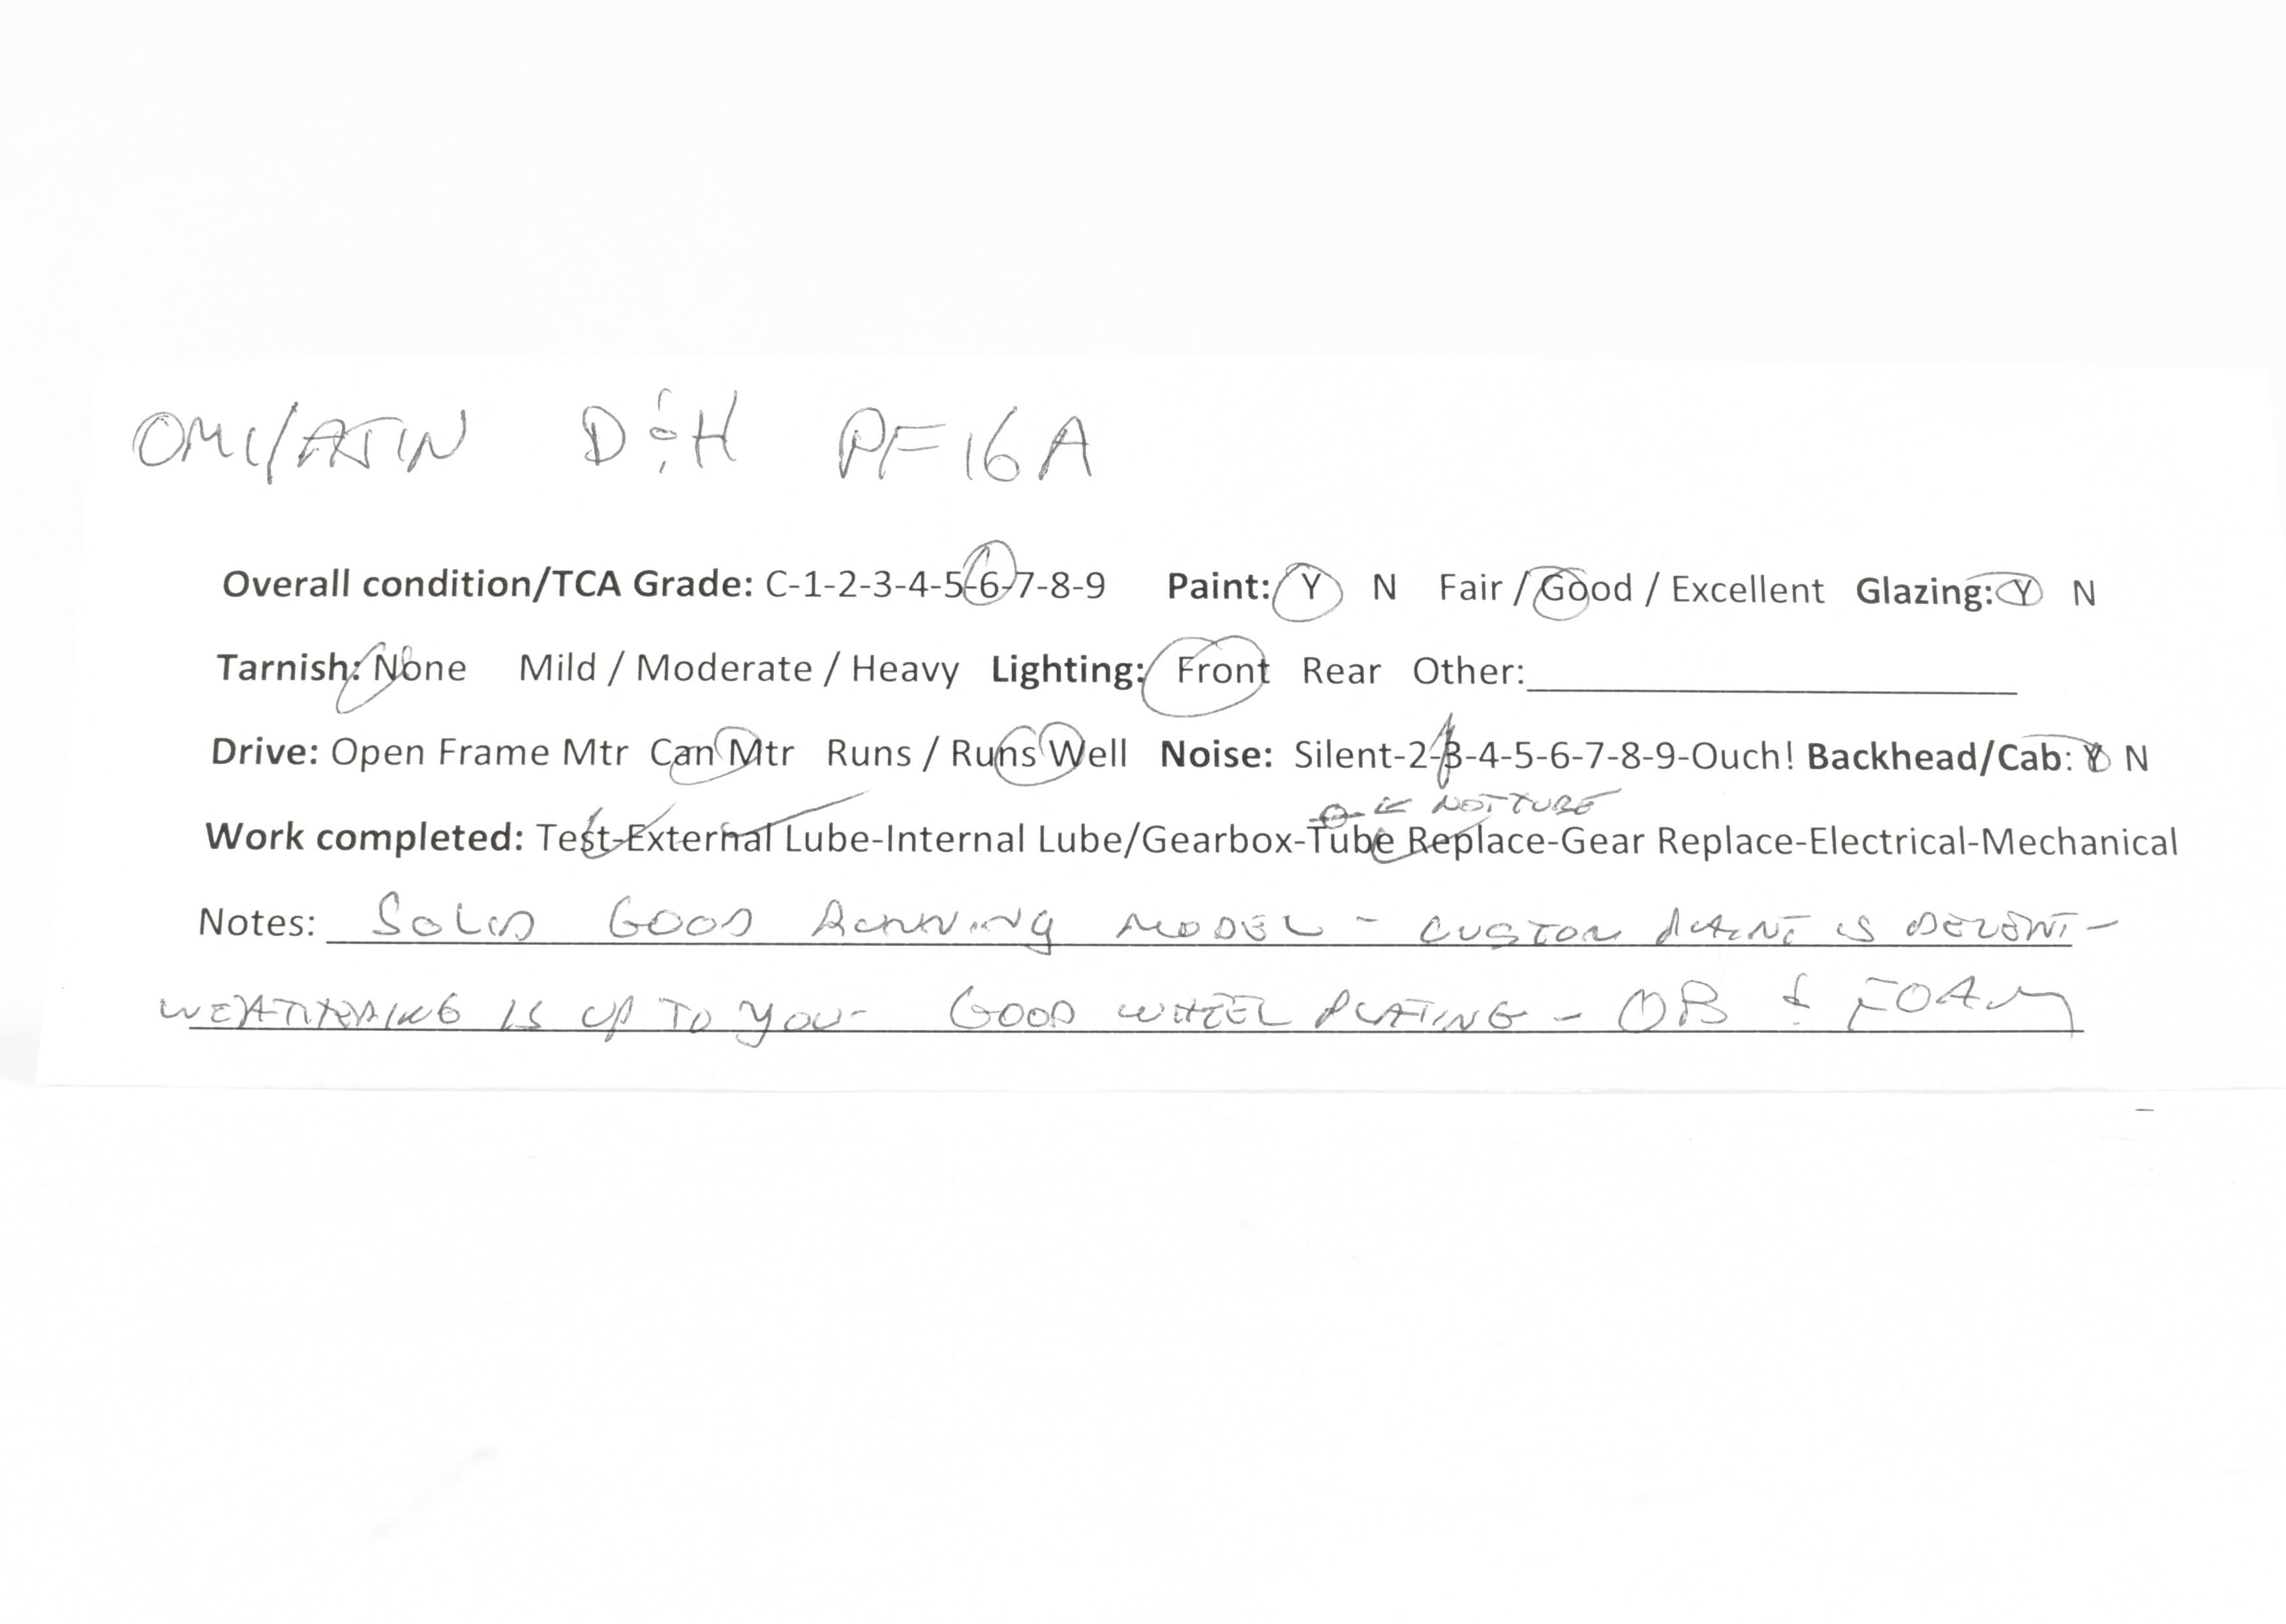 OMI/AJIN D&H PF16A
Overall condition/TCA Grade: C-1-2-3-4-5-6-7-8-9 Paint: Y N Fair / Good / Excellent Glazing: Y N
Tarnish: None Mild / Moderate / Heavy Lighting: Front Rear Other:
Drive: Open Frame Mtr Can Mtr Runs / Runs Well Noise: Silent-2-3-4-5-6-7-8-9-Ouch! Backhead/Cab: Y N
NOT TUBE
Work completed: Test-External Lube-Internal Lube/Gearbox-Tube Replace-Gear Replace-Electrical-Mechanical
Notes: SOLID GOOD RUNNING MODEL - CUSTOM PAINT IS DECENT -
WEATHERING IS UP TO YOU - GOOD WHEEL PLATING - OB & FOAM